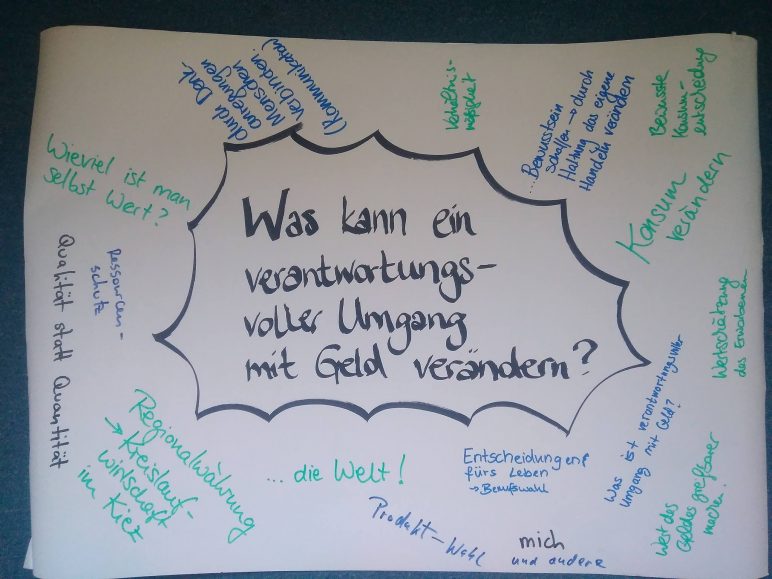 Was kann ein
verantwortungs-
voller Umgang
mit Geld verändern?
durch Denk-
anregungen
Menschen
verbinden.
(Kommunikation)
Verhältnis-
mässigkeit
...Bewusstsein
schaffen → durch
Haltung das eigene
Handeln verändern
Bewusste
Konsum-
entscheidung
Konsum
verändern
Wertschätzung
des Erworbenen
Was ist verantwortungsvoller
Umgang mit Geld?
Wert des
Geldes greifbarer
machen!
Entscheidungen
fürs Leben
→ Berufswahl
mich
und andere
Produkt-Wahl
... die Welt!
Regionalwährung
→ Kreislauf-
wirtschaft
im Kiez
Qualität statt Quantität
Ressourcen-
schutz
Wieviel ist man
selbst Wert?